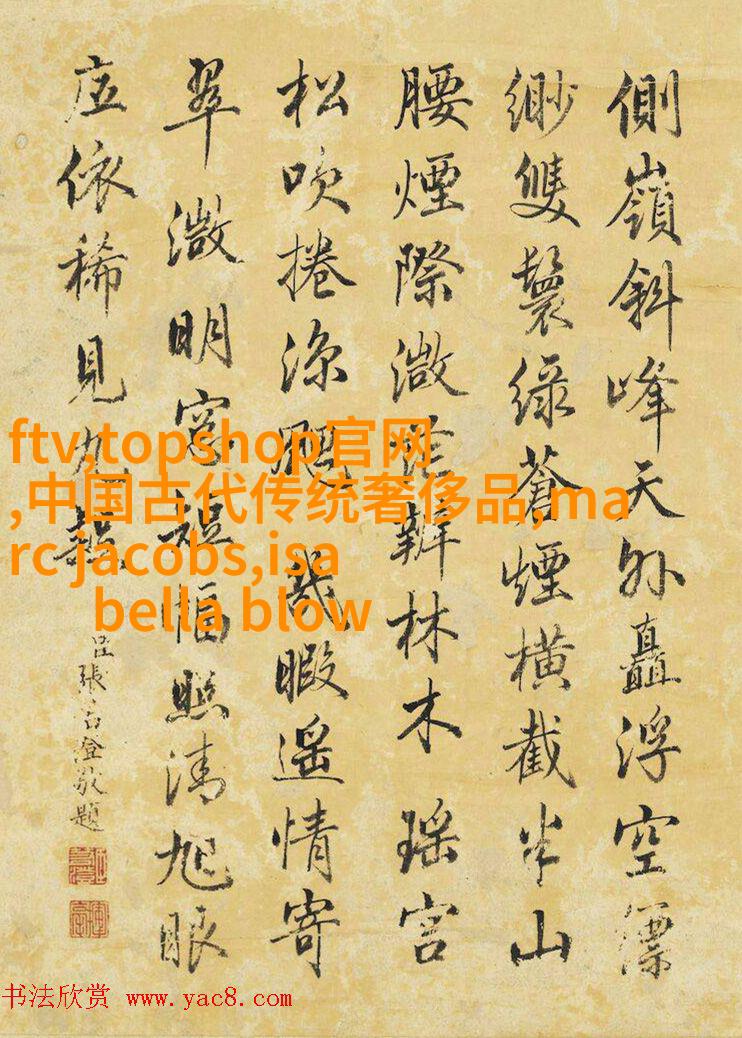 側嶺斜峰天外矗浮空縹
緲雙鬟綠蒼煙橫截半山
腰煙際微辨林木瑤宮
松吹捲涼暇遙情寄
翠微明窓短幅照清旭眼
底依稀見九
臣張若澄敬題
ftv,topshop官网
,中国古代传统奢侈品,ma
rc jacobs,isa
bella blow
书法欣赏 www.yac8.com